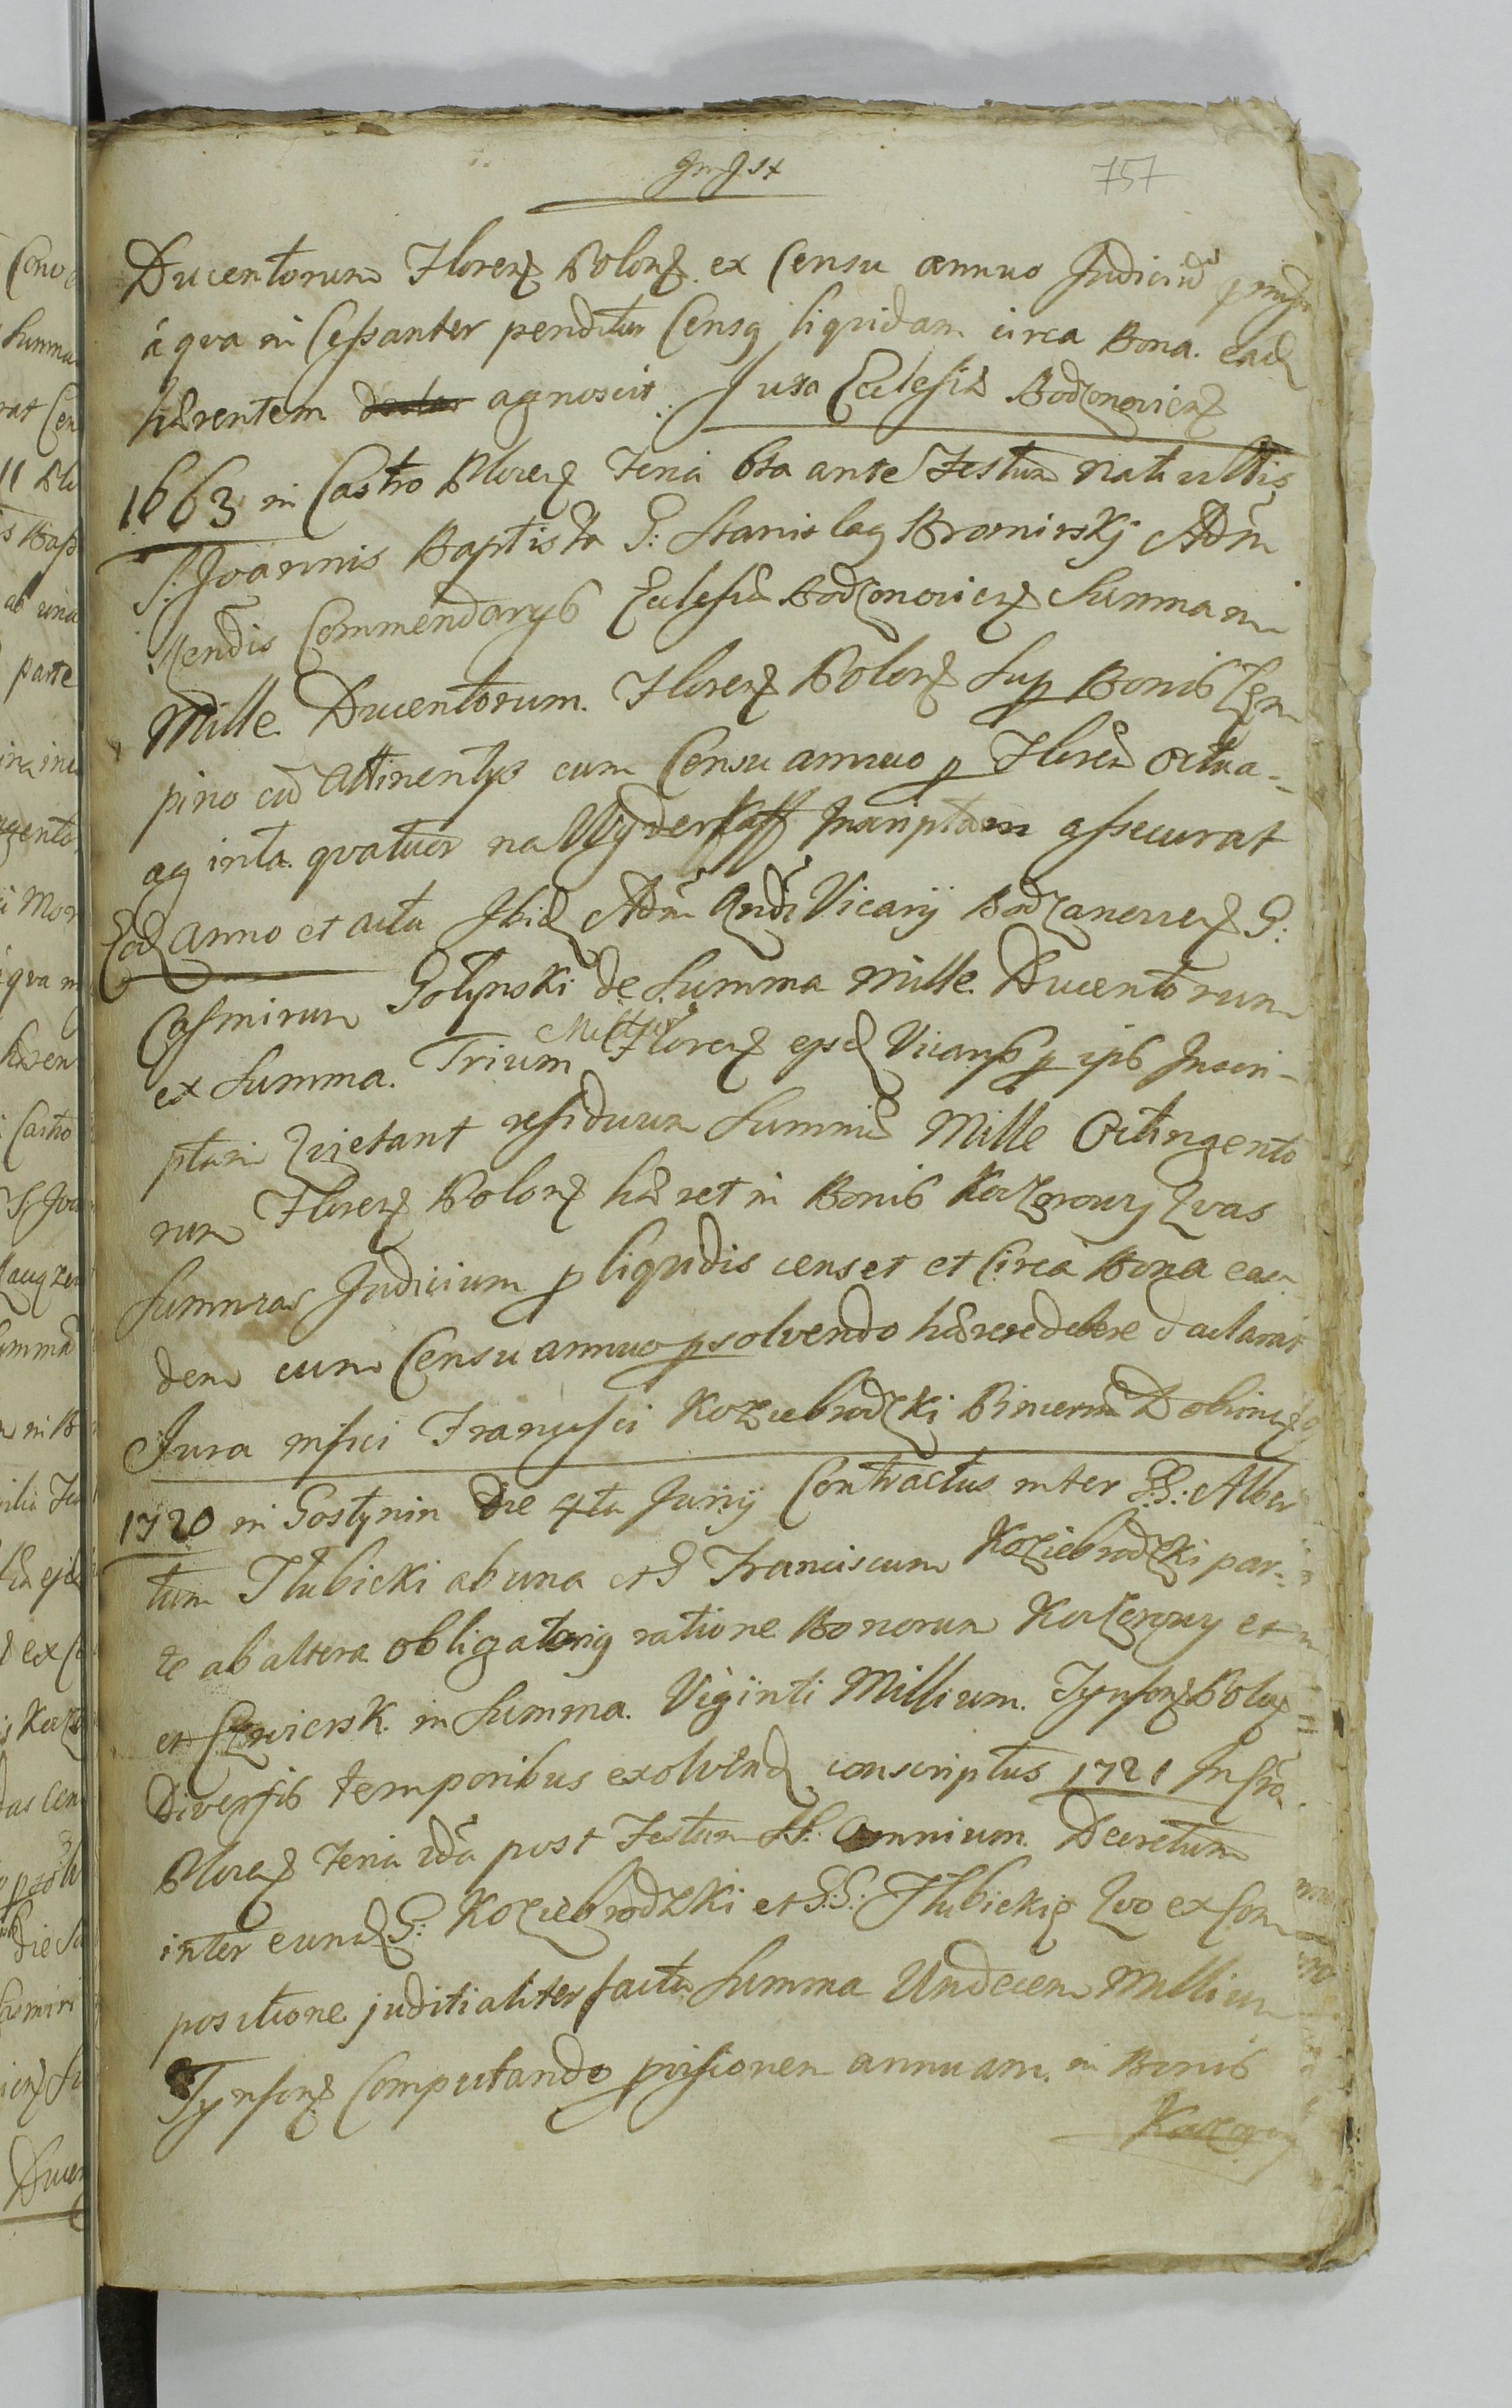 757
Ducentorum Floren Polon. ex Censu annuo Judiciu
á qva in Cessanter penditur Censq liqvidam circa Bona. ead
hærentem agnoscit. Jura Ecclesiæ Bodzonovien
1663 in Castro Plocen Feria 6ta ante Festum Nativittis
S: Joannis Baptistæ G: Stanislaq Bromirskj Adm
Rendis Commendaryb Ecclesiæ Bodzonovien Summam
Mille Ducentorum. Floren Polon Sup Bonis Zem
pino cũ Attinentys cum Censu annuo p Floren Octua-
ginta qvatuor na Wyderkaff Inscriptam assecurat
Eod anno et actu Ibid Adm Rndi Vicarij Bodzanovien G:
Casmirum Golynski de Summa Mille Ducentorum
ex Summa. Trium Millium Floren ejsd Vicarys p ipß Inscri-
ptam Qvietant residuum Summæ Mille Octingento
rum Floren Polon hæret in Bonis Kaczorowy Qvas
Summas Judicium p liqvidis censet et Circa Bona eas
dem cum Censu annuo psolvendo hærere debere declarat
Jura mfici Francisci Koziebrodzki Pincernæ Dobrinen
1720 in Gostynin Die 4ta Junij Contractus inter G.G: Alber
tum Tłubicki ab una et G Franciscum Koziebrodzki par-
te ab altera obligatoriq ratione Bonorum Kaczorowy et
et Czwiersk. in Summa. Viginti Millium. Tynfon Polon
Diversis temporibus exolvend conscriptus 1721 In Cro
Plocen Feria 2da post Festum SS. Omnium. Decretum
inter eund G: Koziebrodzki et G.G: Tłubickie Qvo ex Com
positione juditialiter facta Summa Undecem Millium
Tynfon Computando pvisionem annuam. in Bonis
Kaczorowy